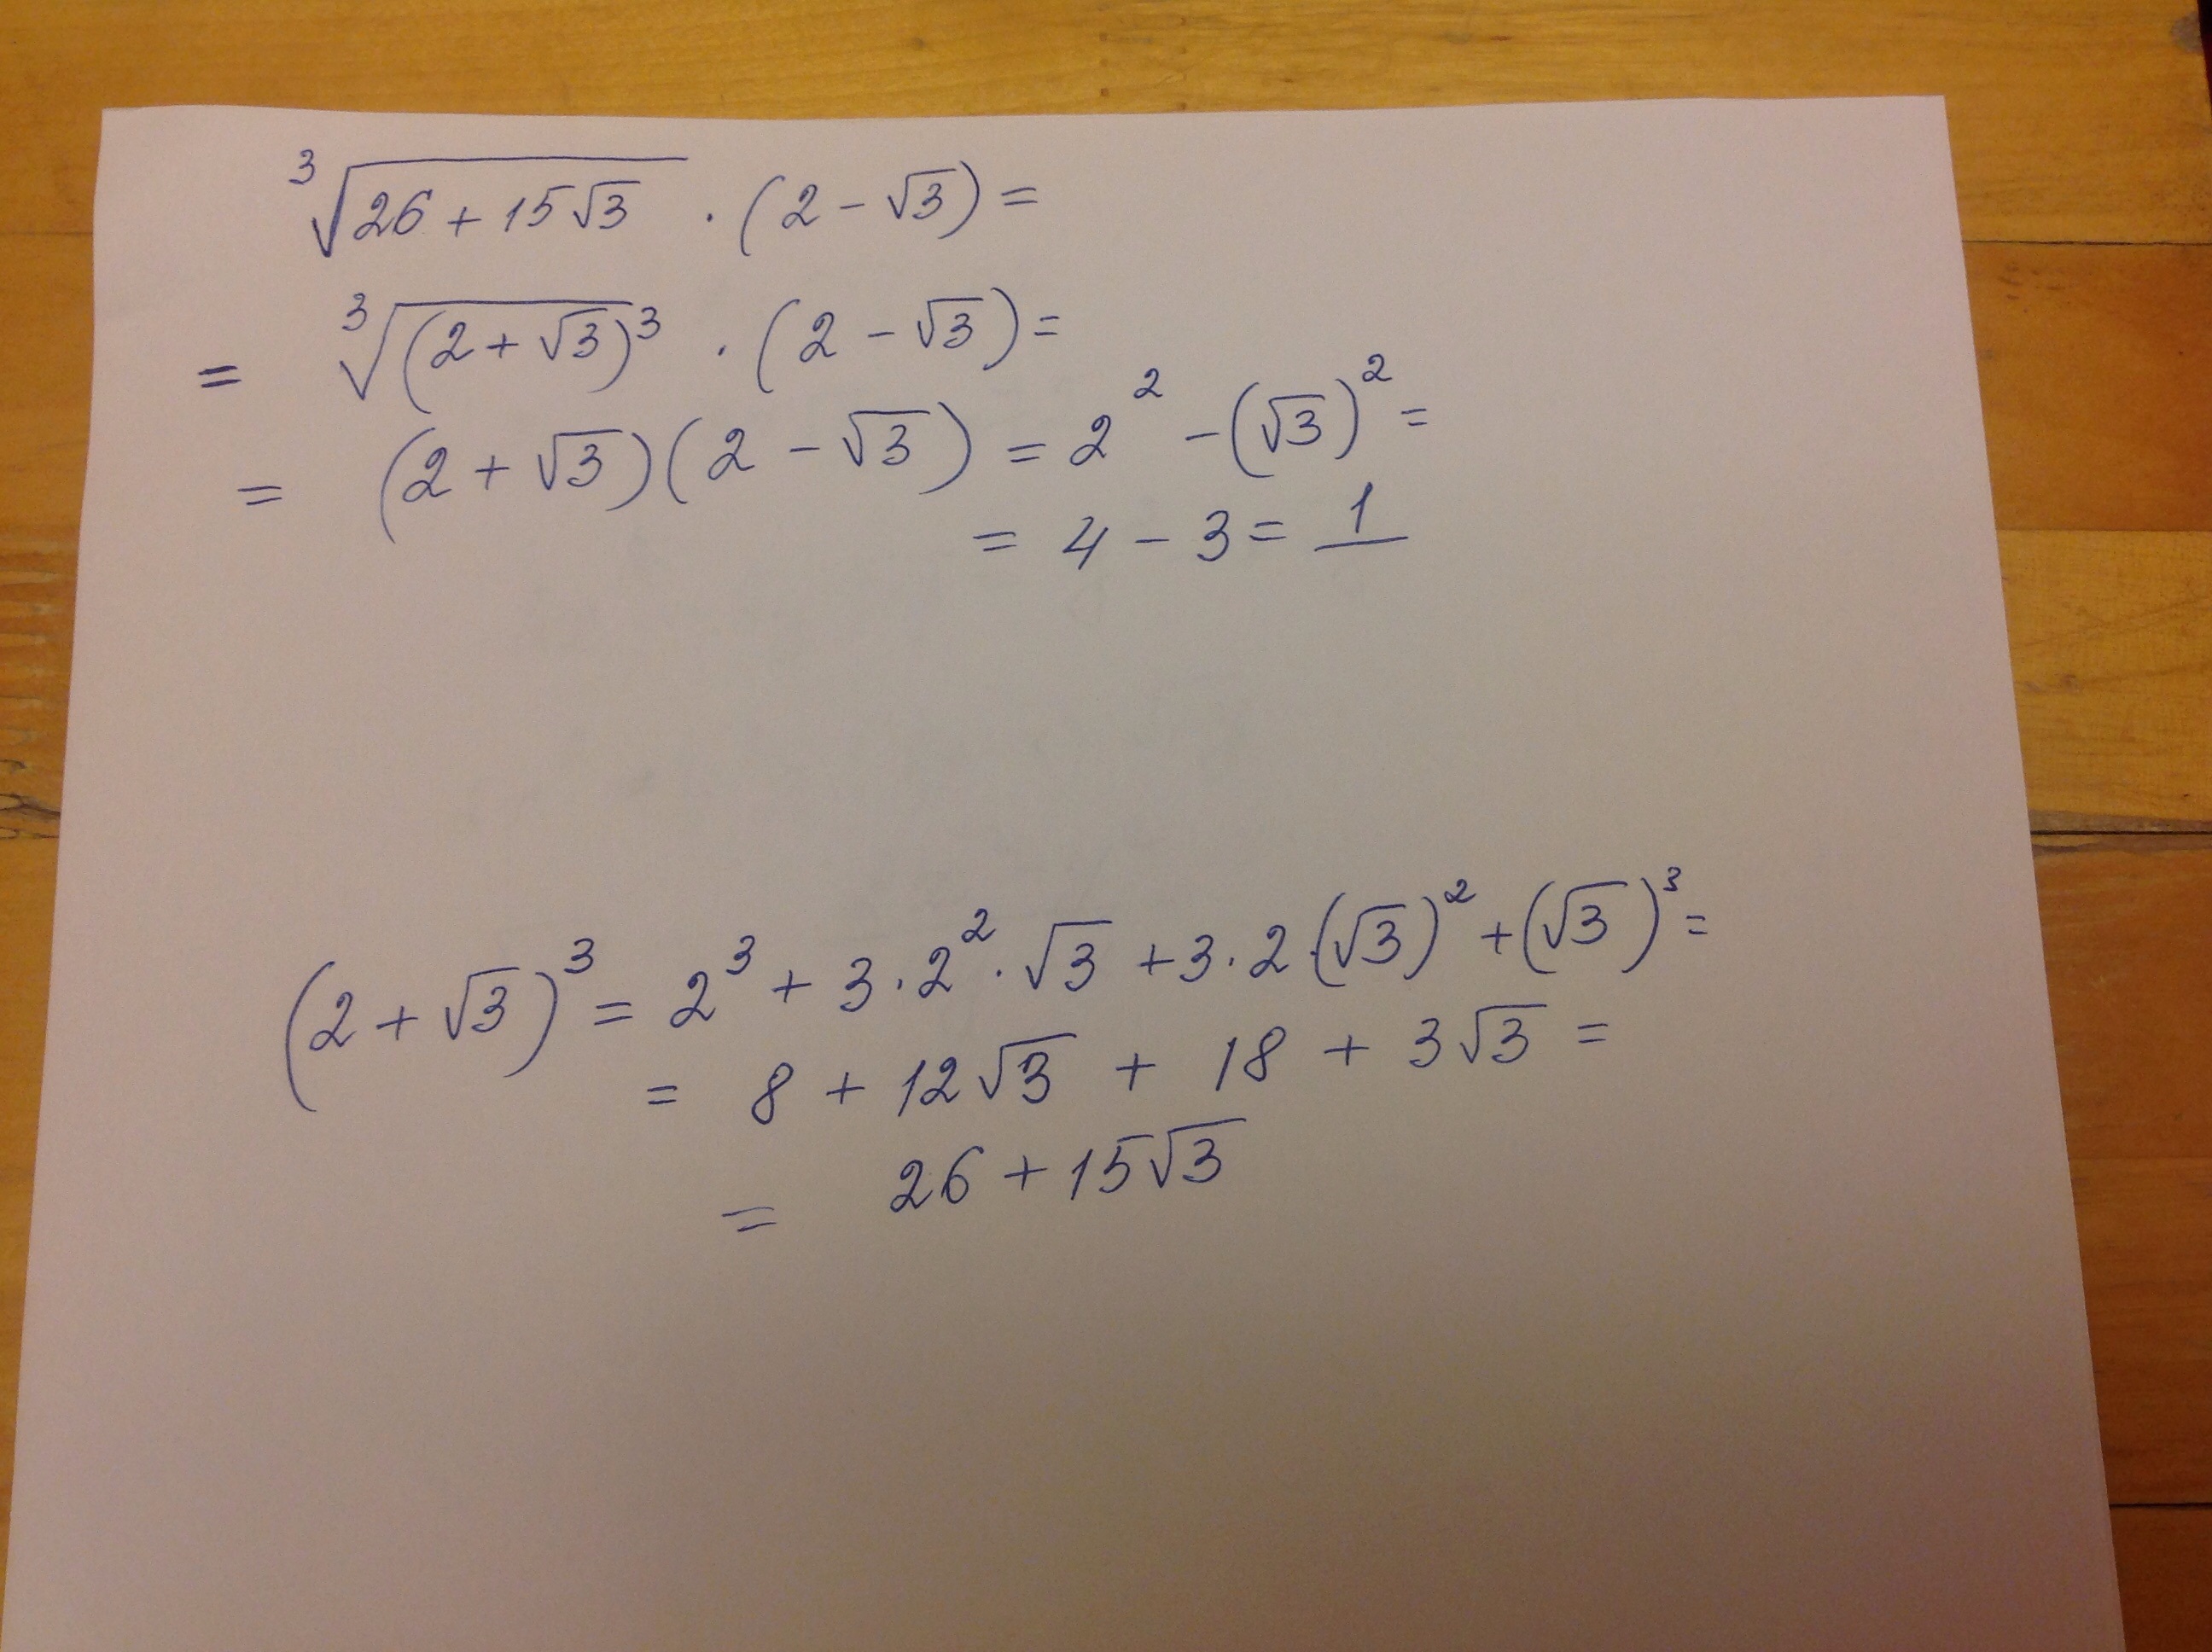 ∛(26 + 15√3) · (2 - √3) =
= ∛((2 + √3)³) · (2 - √3) =
= (2 + √3)(2 - √3) = 2² - (√3)² =
= 4 - 3 = 1
(2 + √3)³ = 2³ + 3 · 2² · √3 + 3 · 2 · (√3)² + (√3)³ =
= 8 + 12√3 + 18 + 3√3 =
= 26 + 15√3